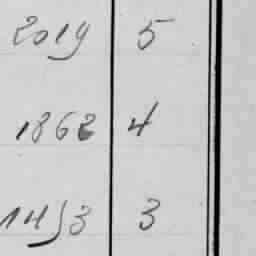 2019 5
1862 4
1453 3